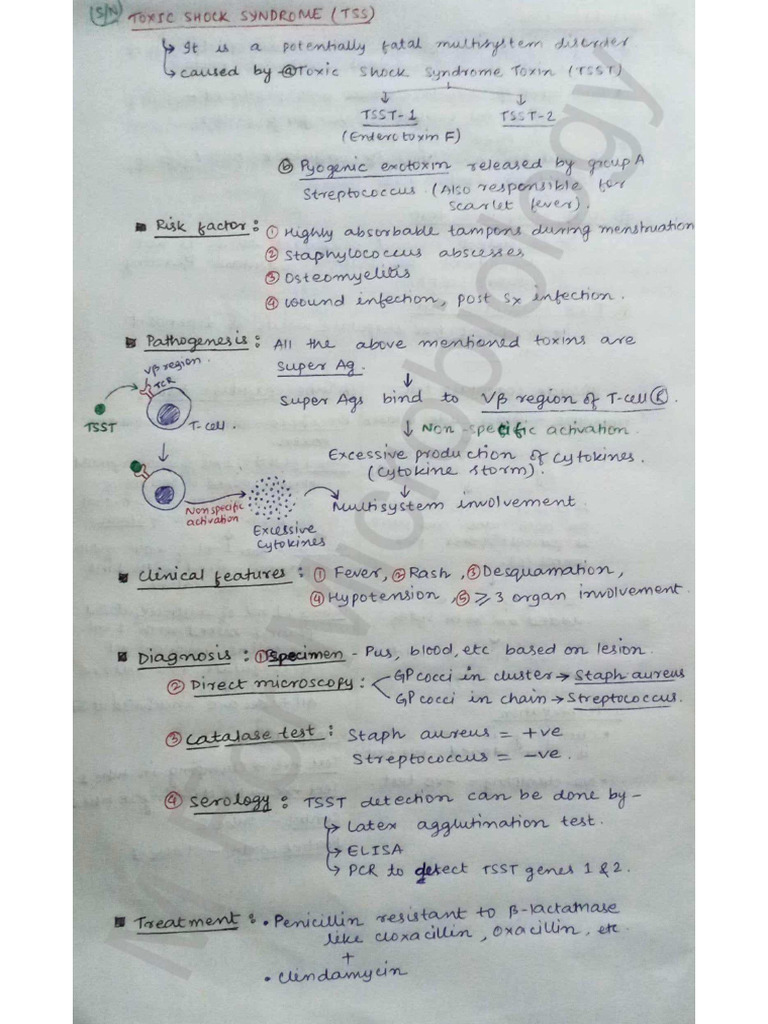 (S/N) TOXIC SHOCK SYNDROME (TSS)
↳ It is a potentially fatal multisystem disorder
↳ caused by - ⓐ Toxic Shock Syndrome Toxin (TSST)
TSST-1 TSST-2
(Enderotoxin F)
ⓑ Pyogenic exotoxin released by group A
Streptococcus (Also responsible for
scarlet fever).
Risk factor: ① Highly absorbable tampons during menstruation
② Staphylococcus abscesses
③ Osteomyelitis
④ wound infection, post Sx infection.
Pathogenesis: All the above mentioned toxins are
Super Ag.
↓
Super Ags bind to Vβ region of T-cell Ⓡ.
↓ Non-specific activation.
Excessive production of cytokines.
(cytokine storm).
↓
Multisystem involvement
Vβ region.
TCR
TSST
T-cell.
Nonspecific
activation
Excessive
cytokines
Clinical features: ① Fever, ② Rash, ③ Desquamation,
④ Hypotension, ⑤ ≥ 3 organ involvement.
Diagnosis: ① Specimen - Pus, blood, etc based on lesion.
② Direct microscopy: GP cocci in cluster → Staph aureus
GP cocci in chain → Streptococcus.
③ Catalase test: Staph aureus = +ve
Streptococcus = -ve.
④ Serology: TSST detection can be done by -
↳ Latex agglutination test.
↳ ELISA
↳ PCR to detect TSST genes 1 & 2.
Treatment: • Penicillin resistant to β-lactamase
like cloxacillin, oxacillin, etc
+
• Clindamycin
Microbiology